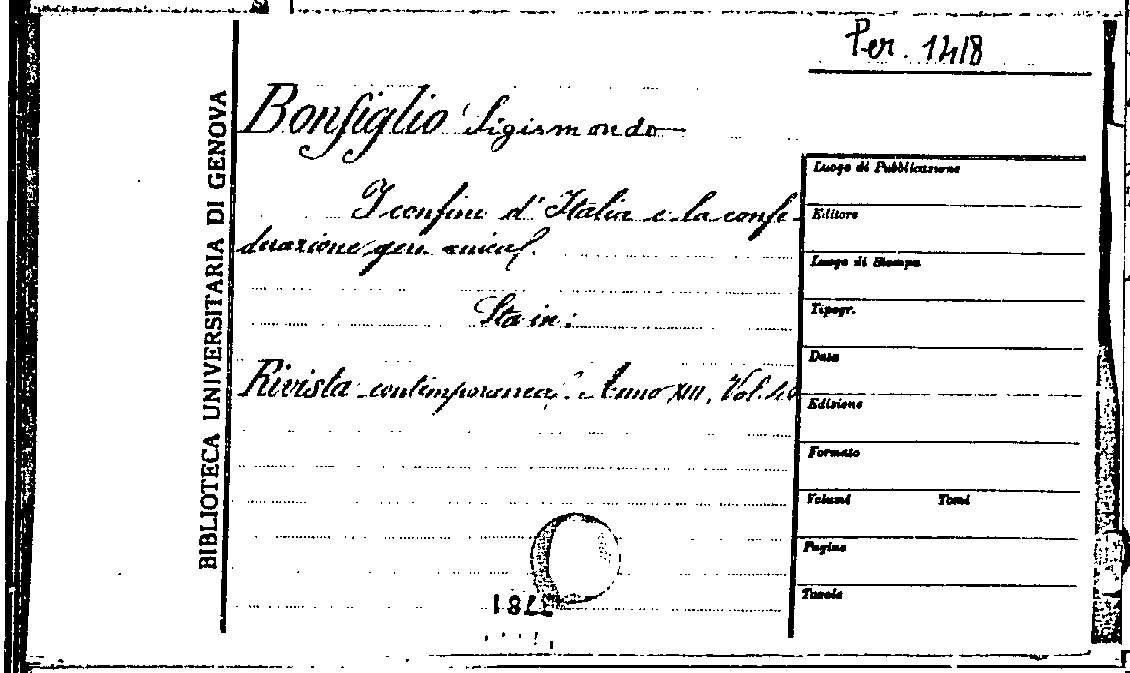 Per. 1418
BIBLIOTECA UNIVERSITARIA DI GENOVA
Bonfiglio Sigismondo
I confini d'Italia e la confe-
derazione germanica.
Sta in:
Rivista contemporanea. Anno XIII, Vol. 40
Luogo di Pubblicazione
Editore
Luogo di Stampa
Tipogr.
Data
Edizione
Formato
Volumi Tomi
Pagine
Tavole